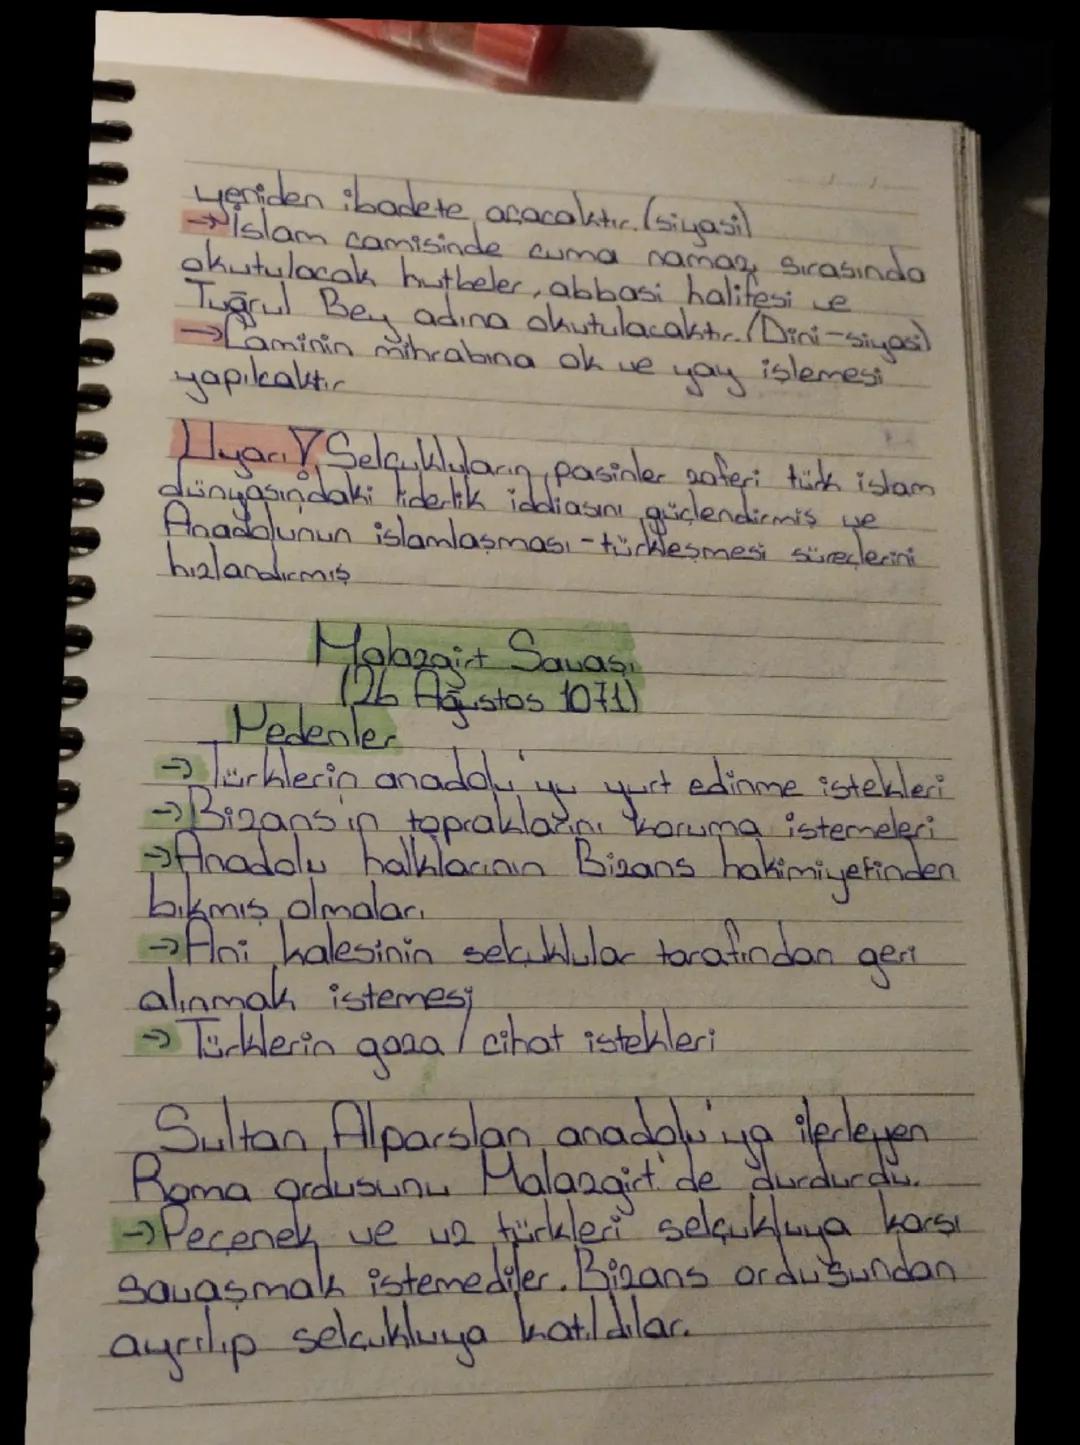 yeniden ibadete açacaktır. (siyasi)
→İslam camisinde cuma namazı sırasında
okutulacak hutbeler, abbasi halifesi ve
Tuğrul Bey adına okutulacaktır. (Dini-siyasi)
→Caminin mihrabına ok ve yay işlemesi
yapılcaktır
Uyarı! Selçukluların pasinler zaferi türk islam
dünyasındaki liderlik iddiasını güçlendirmiş ve
Anadolunun islamlaşması-türkleşmesi süreçlerini
hızlandırmış
Malazgirt Savaşı
(26 Ağustos 1071)
Nedenler
→ Türklerin anadolu'yu yurt edinme istekleri
→Bizans'ın topraklarını koruma istemeleri
→Anadolu halklarının Bizans hakimiyetinden
bıkmış olmaları
→Ani kalesinin selçuklular tarafından geri
alınmak istemesi
→ Türklerin gaza / cihat istekleri
Sultan Alparslan anadolu'ya ilerleyen
Roma ordusunu Malazgirt'de durdurdu.
→Peçenek ve uz türkleri selçukluya karşı
savaşmak istemediler. Bizans ordusundan
ayrılıp selçukluya katıldılar.